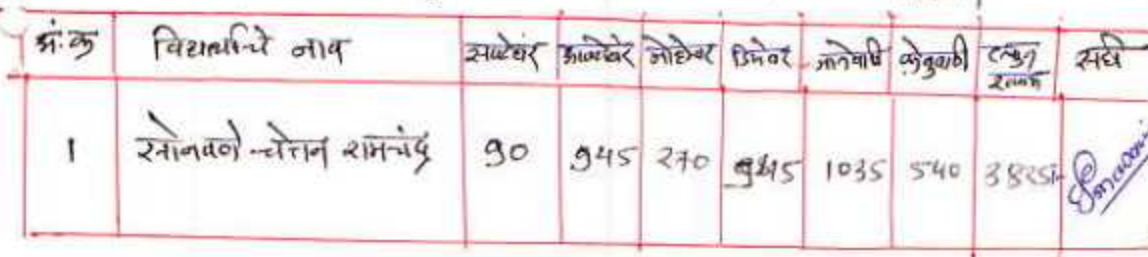 अं.क्र विद्यार्थ्याचे नाव सप्टेंबर ऑक्टोबर नोव्हेंबर डिसेंबर जानेवारी फेब्रुवारी एकुण रक्कम सही
1 सोनवणे चेतन रामचंद्र 90 945 270 945 1035 540 3825/-